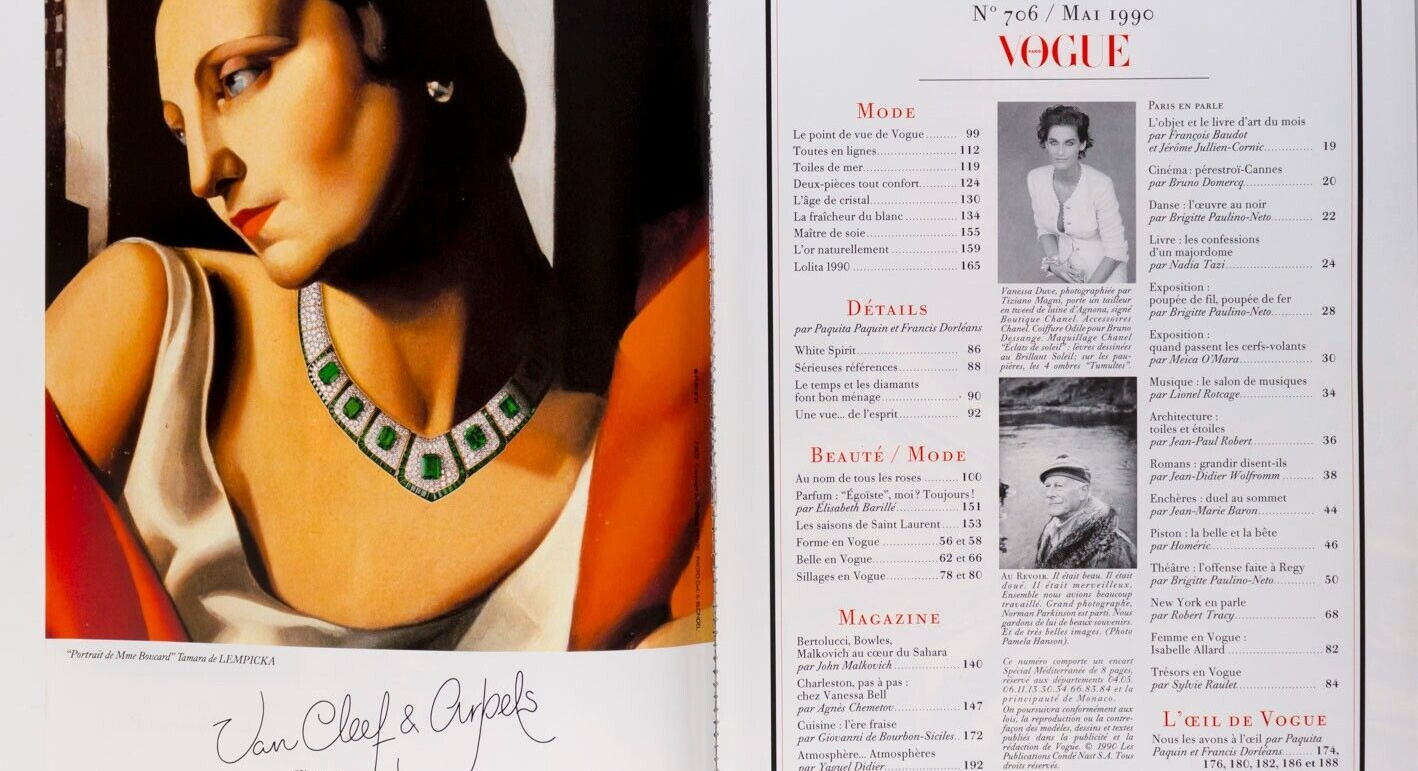 "Portrait de Mme Boucard" Tamara de LEMPICKA
Van Cleef & Arpels
N° 706 / MAI 1990
VOGUE
PARIS
MODE
Le point de vue de Vogue......... 99
Toutes en lignes...................... 112
Toiles de mer.......................... 119
Deux-pièces tout confort.......... 124
L'âge de cristal........................ 130
La fraîcheur du blanc.............. 134
Maître de soie......................... 155
L'or naturellement.................. 159
Lolita 1990............................. 165
DÉTAILS
par Paquita Paquin et Francis Dorléans
White Spirit............................ 86
Sérieuses références................. 88
Le temps et les diamants
font bon ménage..................... 90
Une vue... de l'esprit................ 92
BEAUTÉ / MODE
Au nom de tous les roses.......... 100
Parfum : "Égoïste", moi ? Toujours !
par Élisabeth Barillé................ 151
Les saisons de Saint Laurent..... 153
Forme en Vogue.................. 56 et 58
Belle en Vogue.................... 62 et 66
Sillages en Vogue................ 78 et 80
MAGAZINE
Bertolucci, Bowles,
Malkovich au cœur du Sahara
par John Malkovich................. 140
Charleston, pas à pas :
chez Vanessa Bell
par Agnès Chemetov................ 147
Cuisine : l'ère fraise
par Giovanni de Bourbon-Siciles.. 172
Atmosphère... Atmosphères
par Yaguel Didier.................... 192
Vanessa Duve, photographiée par
Tiziano Magni, porte un tailleur
en tweed de laine d'Agnona, signé
Boutique Chanel. Accessoires
Chanel. Coiffure Odile pour Bruno
Dessange. Maquillage Chanel
"Éclats de soleil" : lèvres dessinées
au Brillant Soleil ; sur les pau-
pières, les 4 ombres "Tumultes".
AU REVOIR. Il était beau. Il était
doué. Il était merveilleux.
Ensemble nous avions beaucoup
travaillé. Grand photographe,
Norman Parkinson est parti. Nous
gardons de lui de beaux souvenirs.
Et de très belles images. (Photo
Pamela Hanson).
Ce numéro comporte un encart
Spécial Méditerranée de 8 pages,
réservé aux départements 04.05.
06.11.13.30.34.66.83.84 et la
principauté de Monaco.
On poursuivra conformément aux
lois, la reproduction ou la contre-
façon des modèles, dessins et textes
publiés dans la publicité et la
rédaction de Vogue. © 1990 Les
Publications Condé Nast S.A. Tous
droits réservés.
PARIS EN PARLE
L'objet et le livre d'art du mois
par François Baudot
et Jérôme Jullien-Cornic............. 19
Cinéma : pérestroï-Cannes
par Bruno Domercq................... 20
Danse : l'œuvre au noir
par Brigitte Paulino-Neto........... 22
Livre : les confessions
d'un majordome
par Nadia Tazi......................... 24
Exposition :
poupée de fil, poupée de fer
par Brigitte Paulino-Neto........... 28
Exposition :
quand passent les cerfs-volants
par Meica O'Mara..................... 30
Musique : le salon de musiques
par Lionel Rotcage.................... 34
Architecture :
toiles et étoiles
par Jean-Paul Robert................. 36
Romans : grandir disent-ils
par Jean-Didier Wolfromm......... 38
Enchères : duel au sommet
par Jean-Marie Baron................ 44
Piston : la belle et la bête
par Homéric............................ 46
Théâtre : l'offense faite à Regy
par Brigitte Paulino-Neto........... 50
New York en parle
par Robert Tracy....................... 68
Femme en Vogue :
Isabelle Allard.......................... 82
Trésors en Vogue
par Sylvie Raulet...................... 84
L'ŒIL DE VOGUE
Nous les avons à l'œil par Paquita
Paquin et Francis Dorléans......... 174,
176, 180, 182, 186 et 188